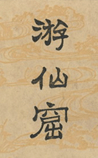 游仙窟